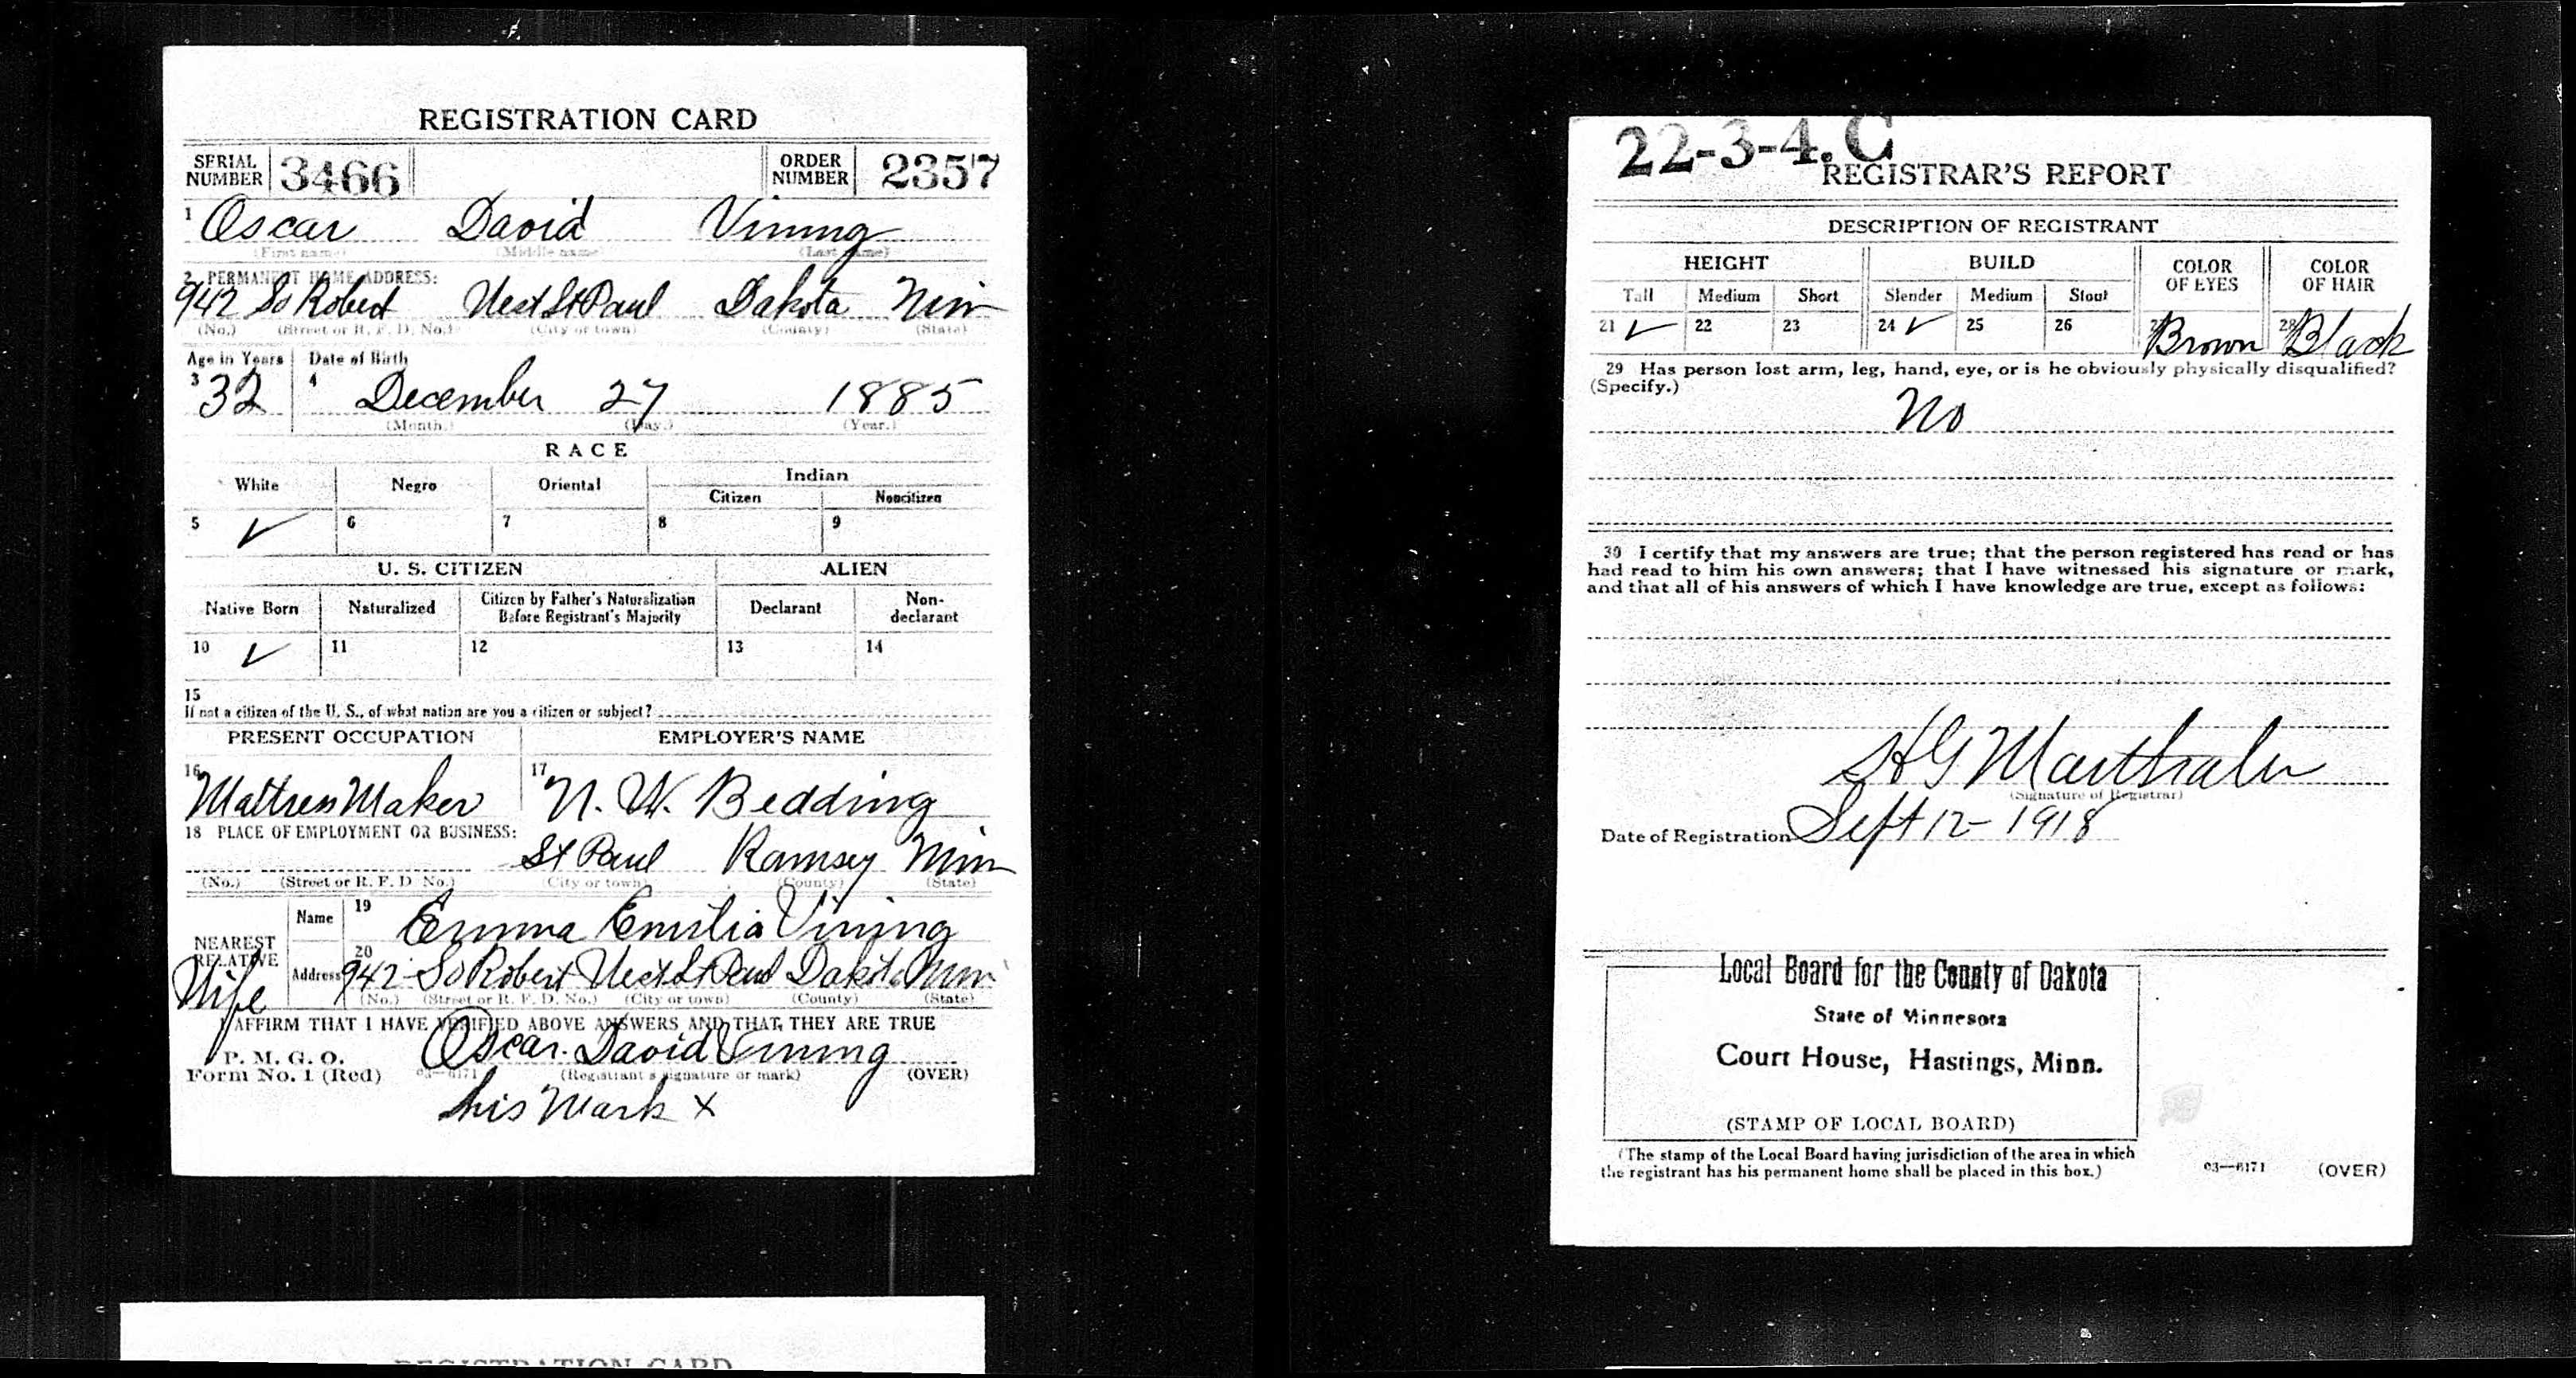 REGISTRATION CARD
SERIAL NUMBER 3466 ORDER NUMBER 2357
1 Oscar David Vining
(First name) (Middle name) (Last name)
2 PERMANENT HOME ADDRESS:
942 So Robert West St Paul Dakota Min
(No.) (Street or R. F. D. No.) (City or town) (County) (State)
Age in Years Date of Birth
3 32 4 December 27 1885
(Month.) (Day.) (Year.)
RACE
White Negro Oriental Indian
Citizen Noncitizen
5 ✓ 6 7 8 9
U. S. CITIZEN ALIEN
Native Born Naturalized Citizen by Father's Naturalization Before Registrant's Majority Declarant Non-declarant
10 ✓ 11 12 13 14
15
If not a citizen of the U. S., of what nation are you a citizen or subject?
PRESENT OCCUPATION EMPLOYER'S NAME
16 Mattress Maker 17 N. W. Bedding
18 PLACE OF EMPLOYMENT OR BUSINESS:
St Paul Ramsey Min
(No.) (Street or R. F. D. No.) (City or town) (County) (State)
NEAREST RELATIVE Name 19 Emma Emilia Vining
Wife Address 20 942 So Robert West St Paul Dakota Min
(No.) (Street or R. F. D. No.) (City or town) (County) (State)
I AFFIRM THAT I HAVE VERIFIED ABOVE ANSWERS AND THAT THEY ARE TRUE
P. M. G. O.
Form No. 1 (Red) Oscar David Vining
03—6171 (Registrant's signature or mark) (OVER)
his Mark X
REGISTRATION CARD
22-3-4. C
REGISTRAR'S REPORT
DESCRIPTION OF REGISTRANT
HEIGHT BUILD COLOR OF EYES COLOR OF HAIR
Tall Medium Short Slender Medium Stout
21 ✓ 22 23 24 ✓ 25 26 27 Brown 28 Black
29 Has person lost arm, leg, hand, eye, or is he obviously physically disqualified?
(Specify.)
No
30 I certify that my answers are true; that the person registered has read or has
had read to him his own answers; that I have witnessed his signature or mark,
and that all of his answers of which I have knowledge are true, except as follows:
H G Marthaler
(Signature of Registrar)
Date of Registration Sept 12 - 1918
Local Board for the County of Dakota
State of Minnesota
Court House, Hastings, Minn.
(STAMP OF LOCAL BOARD)
(The stamp of the Local Board having jurisdiction of the area in which
the registrant has his permanent home shall be placed in this box.)
03—6171 (OVER)